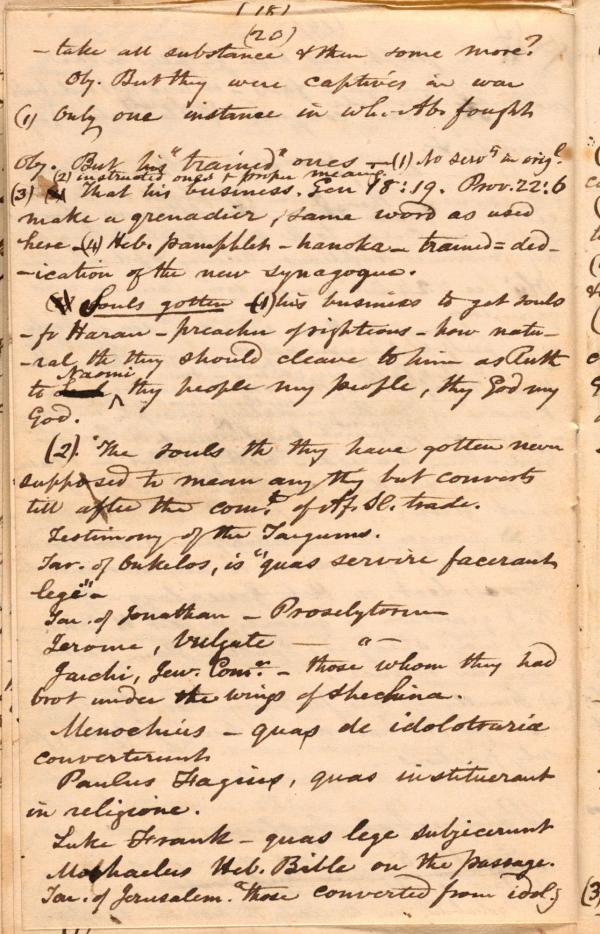 (18)
(20)
- take all substance & then some more?
Obj. But they were captives in war
(1) Only one instance in wh. Ab. fought
Obj. But his "trained" ones - (1) No serv.ts in orig.l
(2) instructed ones & proper meaning.
(3) That his business. Gen 18:19. Prov. 22:6
make a grenadier, same word as used
here - (4) Heb. pamphlet - hanoka - trained = ded-
-ication of the new synagogue.
Souls gotten - (1) his business to get souls
- fr Haran - preacher of rightious - how natu-
-ral th they should cleave to him as Ruth
to Naomi thy people my people, thy God my
God.
(2). "The souls th they have gotten never
supposed to mean any thg but converts
till after the com.t of Af. Sl. trade.
Testimony of the Targums.
Tar. of Onkelos, is "quas servire facerant
lege" -
Tar. of Jonathan - Proselytorum
Jerome, Vulgate — " —
Jarchi, Jew. Com.er - those whom they had
brot under the wings of Shechina.
Menochius - quas de idolotraria
converterunt
Paulus Fagius, quas instituerant
in religione.
Luke Frank - quas lege subjicerunt
Michaelus Heb. Bible on the passage.
Tar. of Jerusalem. "those converted from idol.y